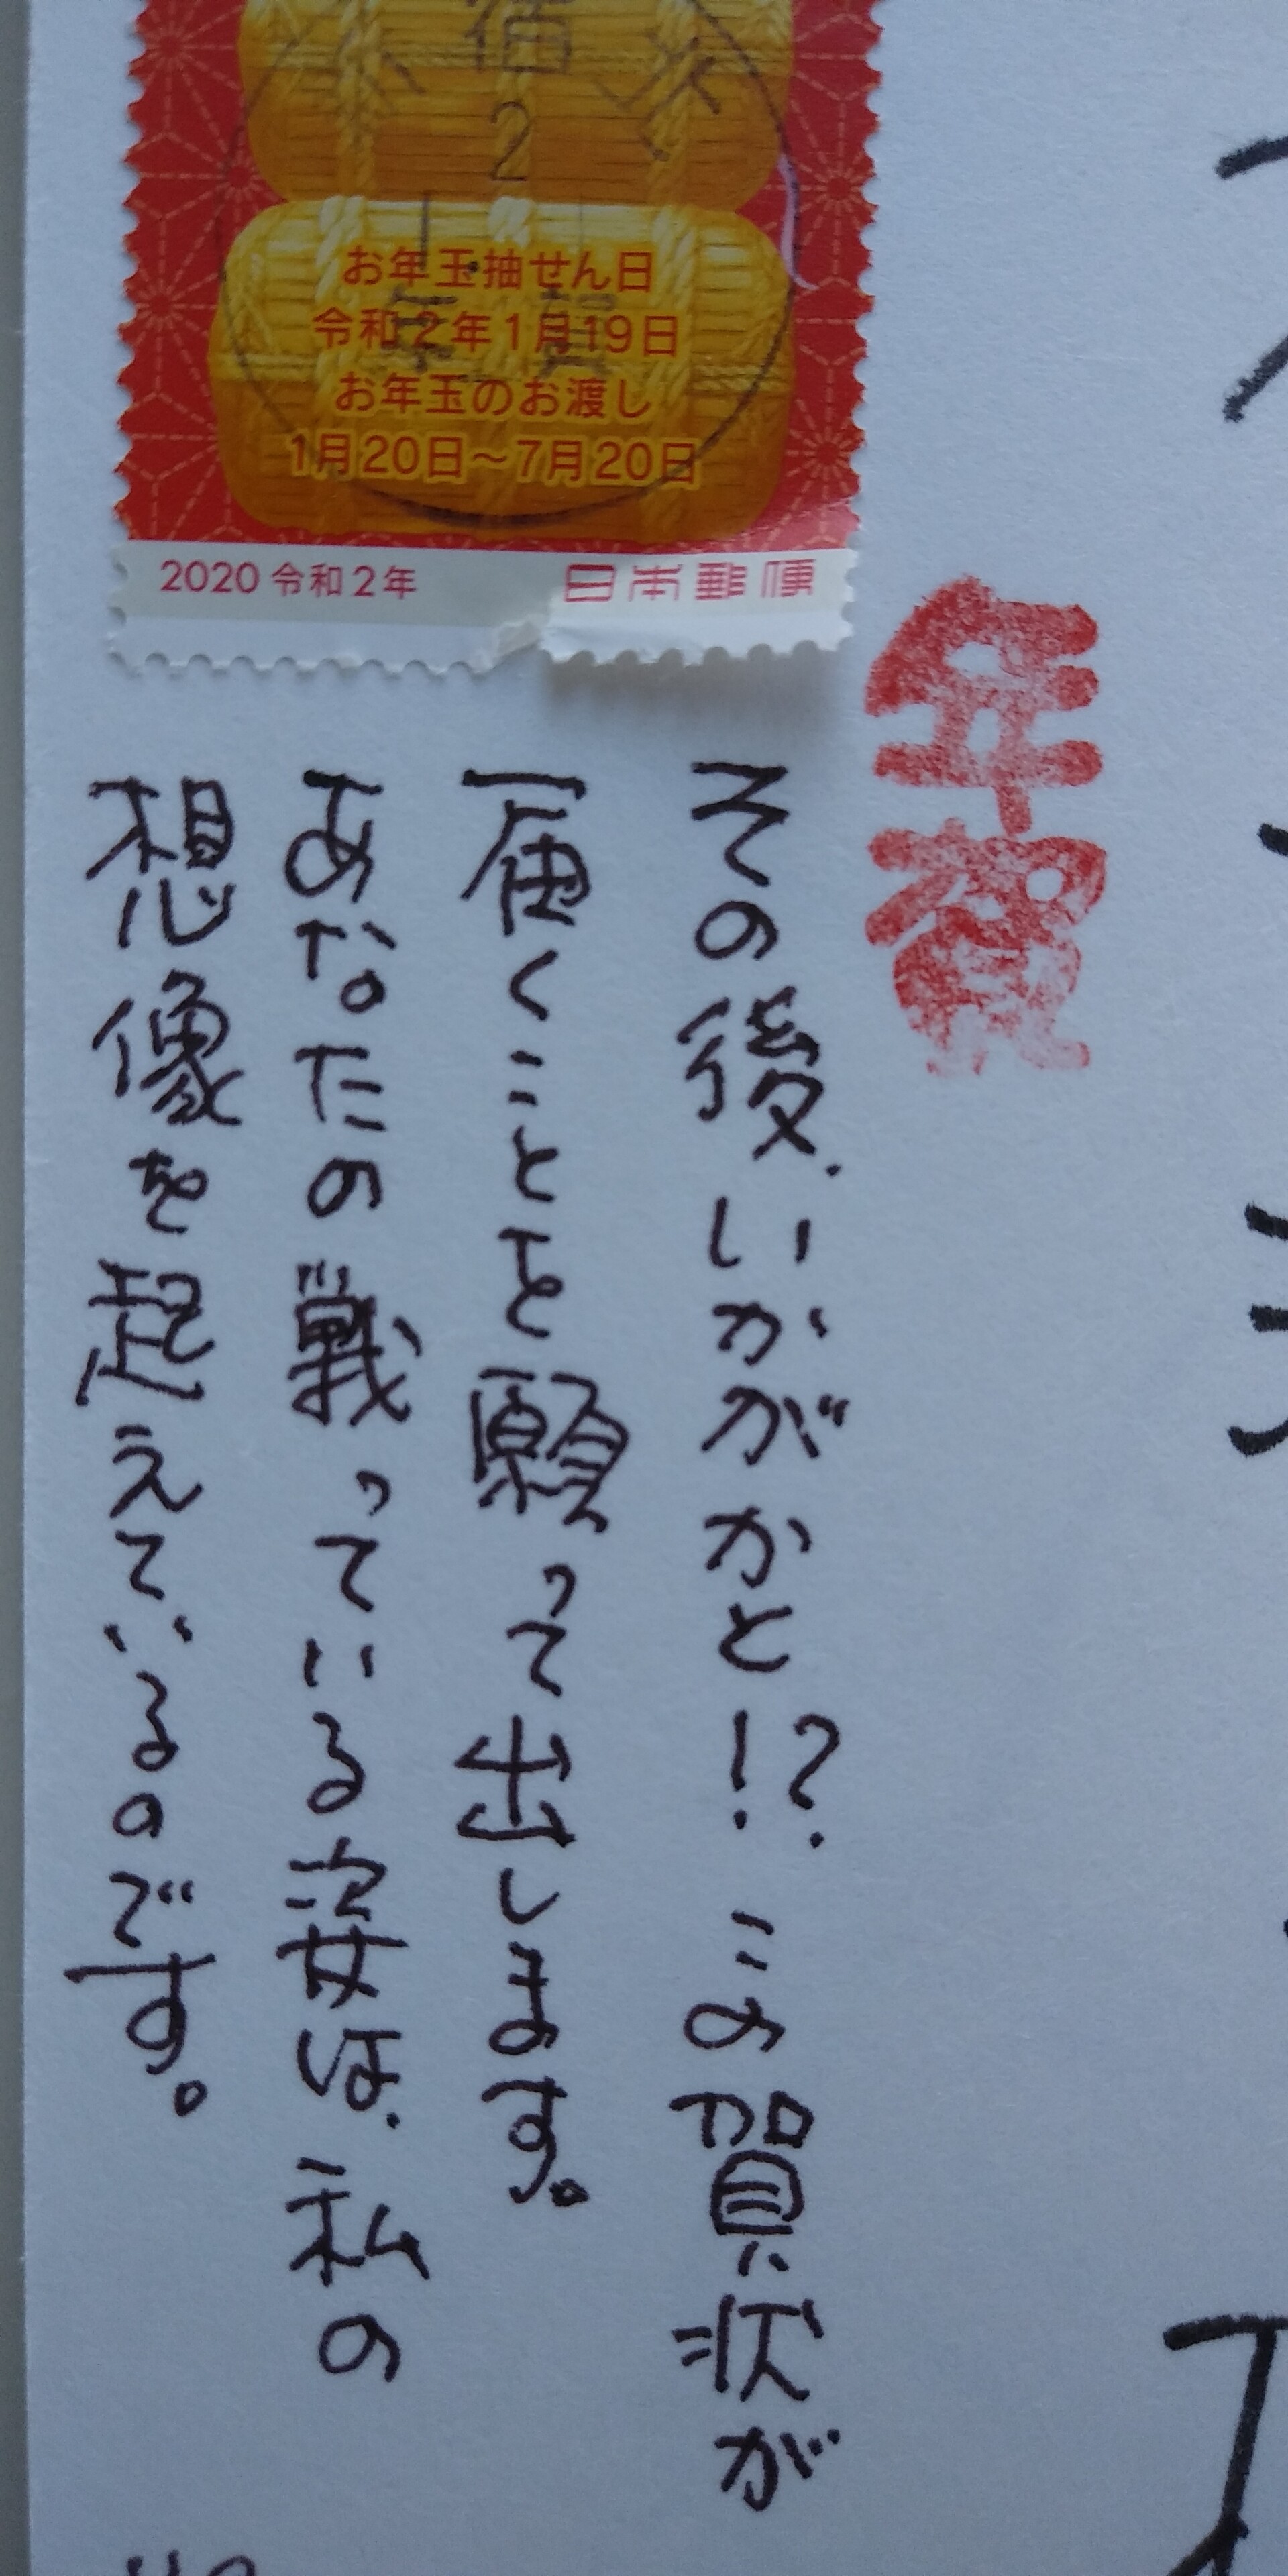 宿
2
お年玉抽せん日
令和2年1月19日
お年玉のお渡し
1月20日～7月20日
2020 令和2年
日本郵便
年賀
年賀
その後、いかがかと!? この賀状が
届くことを願って出します。
あなたの戦っている姿は、私の
想像を起えているのです。